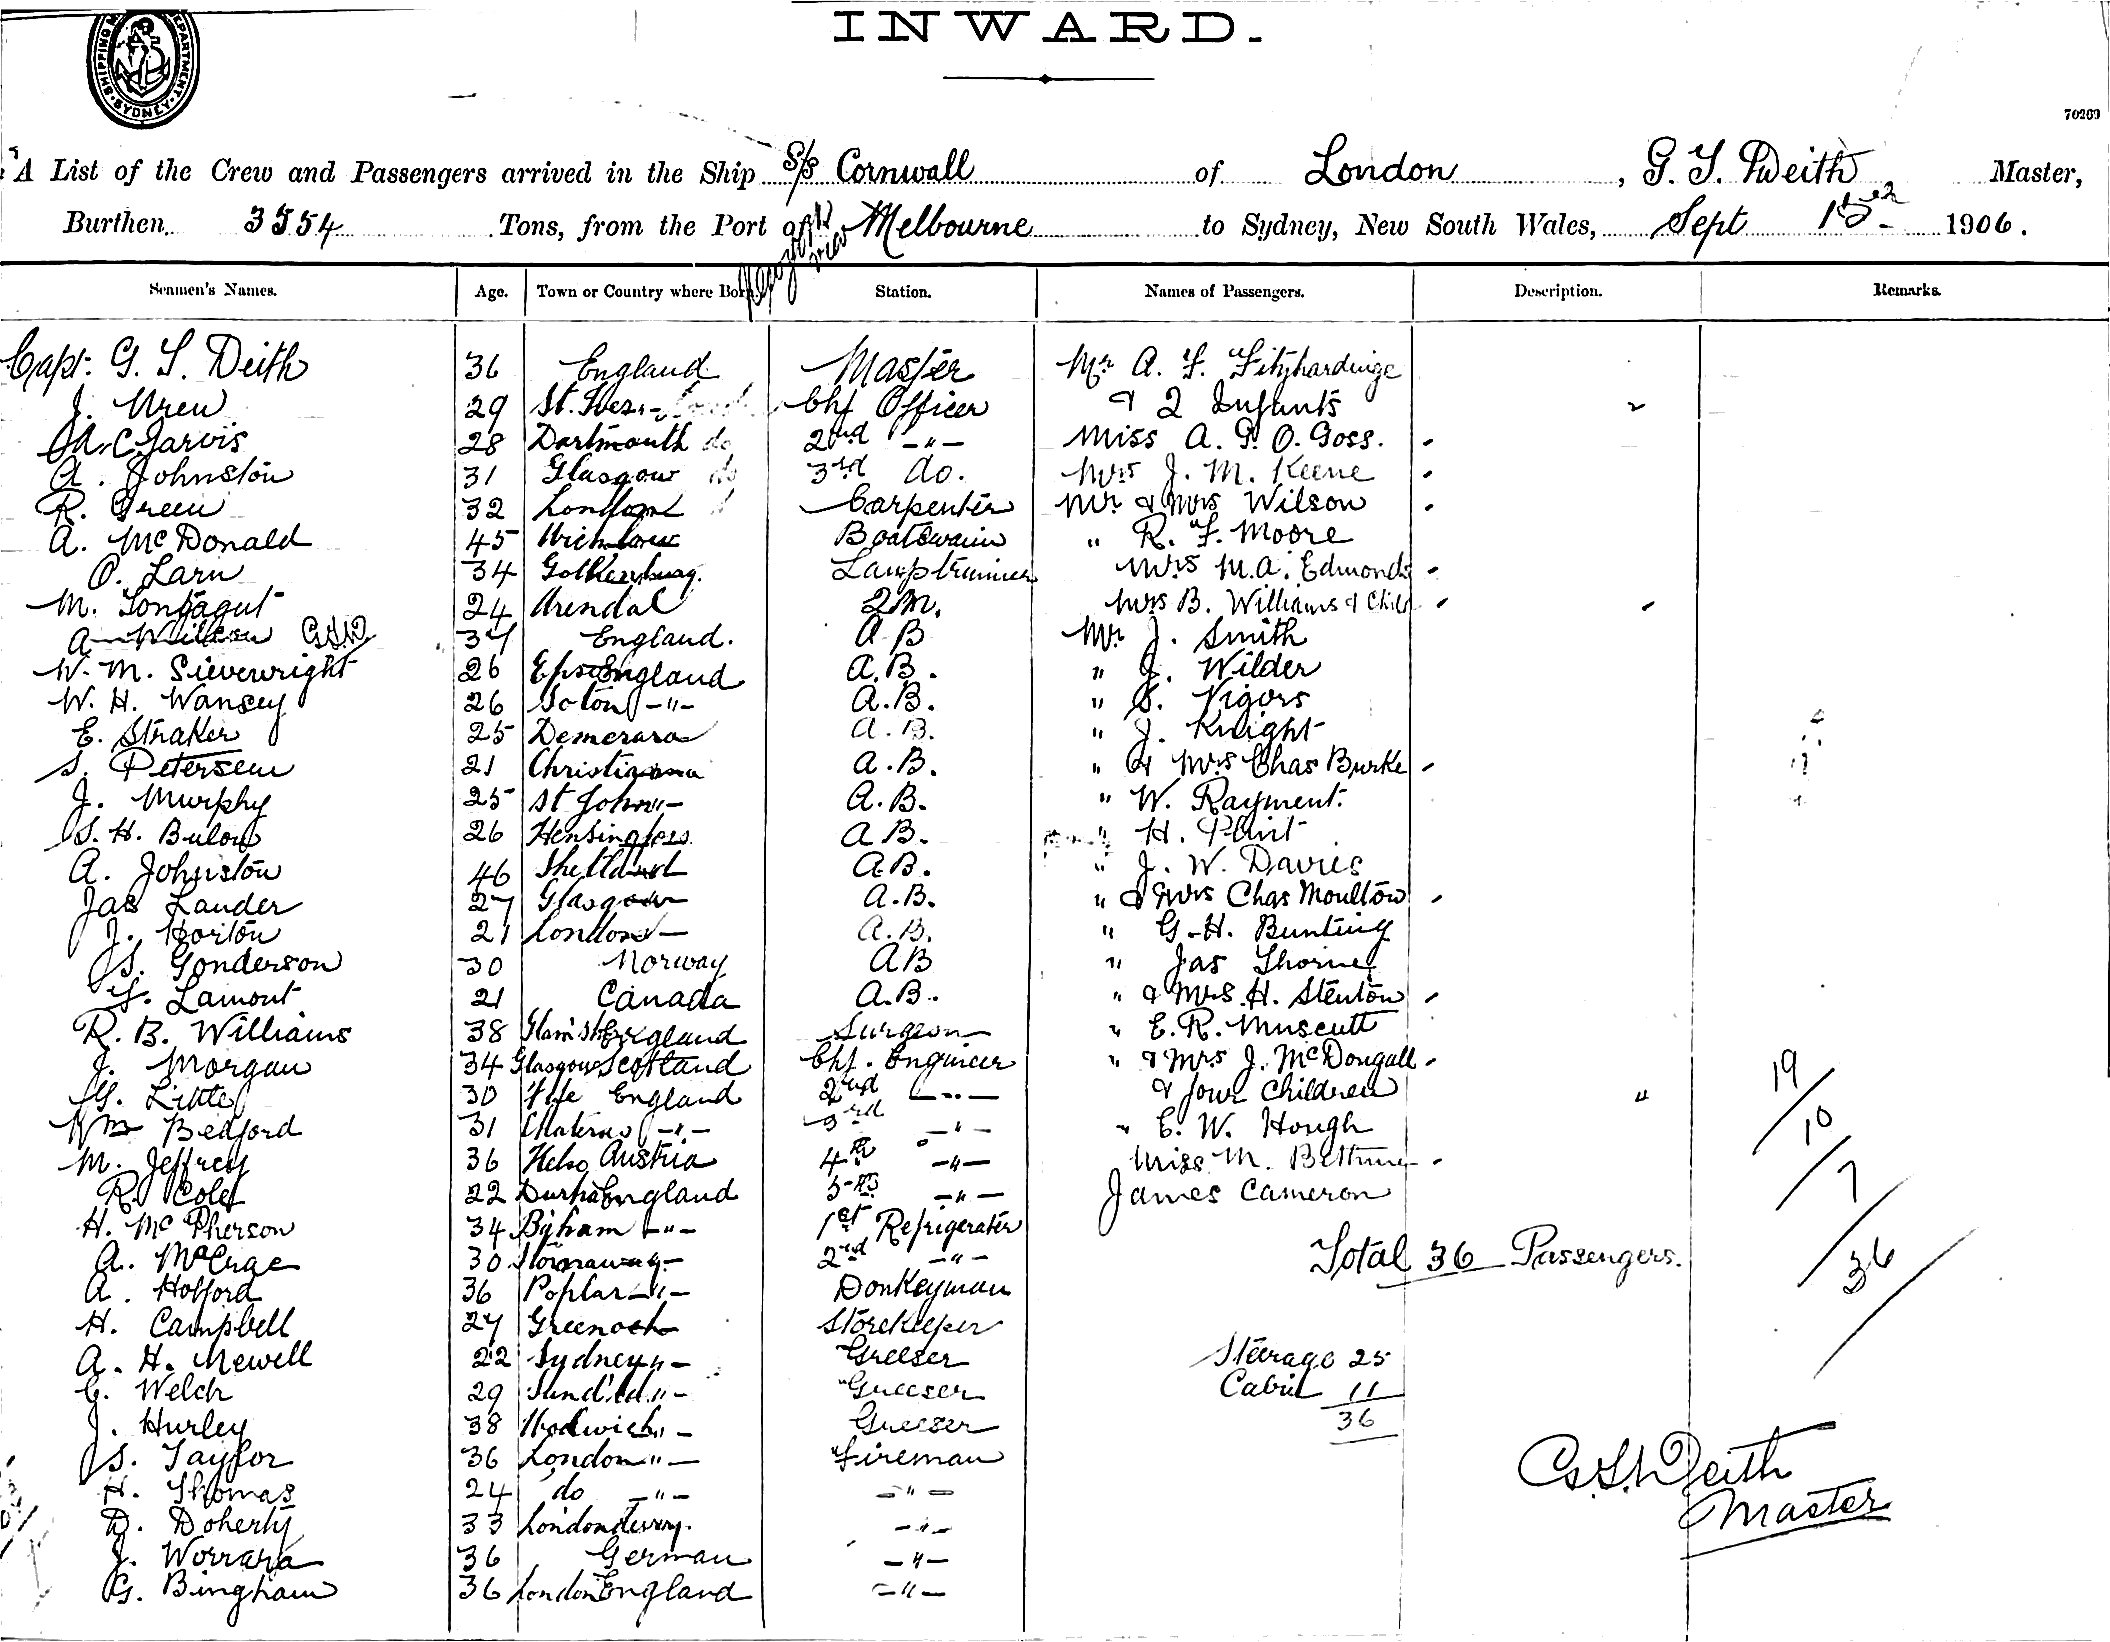 INWARD.
SHIPPING DEPARTMENT SYDNEY
70269
A List of the Crew and Passengers arrived in the Ship S/S Cornwall of London, G. S. Deith Master,
Burthen 3554 Tons, from the Port of via Melbourne to Sydney, New South Wales, Sept 15 1906.
Seamen's Names. Age. Town or Country where Born. Station. Names of Passengers. Description. Remarks.
Capt. G. S. Deith 36 England Master Mr A. F. Fitzhardinge
J. Uren 29 St. Ives Chf Officer & 2 Infants "
Jarvis 28 Dartmouth do 2nd -"- Miss A. G. O. Goss.
A. Johnston 31 Glasgow do 3rd do. Mrs J. M. Keene
R. Green 32 London Carpenter Mr & Mrs Wilson
A. McDonald 45 Boatswain " R. F. Moore
O. Larn 34 Lamptrimmer Mrs M.A. Edmonds
M. 24 Arendal 2 M. Mrs B. Williams & Child
A 34 England. A B Mr J. Smith
W. M. Sieverwright 26 England A.B. " J. Wilder
W. H. Wansey 26 Soton -"- A.B. " S. Vigors
E. Straker 25 Demerara A.B. " J. Knight
S. Petersen 21 Christiana A.B. " & Mrs Chas Burke
J. Murphy 25 St Johns A.B. " W. Rayment.
S. H. Bulow 26 A B. " H.
A. Johnston 46 Shetland A.B. " J. W. Davies
Jas Lauder 27 Glasgow A.B. " & Mrs Chas Moulton
J. Horton 21 London A.B. " G. H. Bunting
S. Gonderson 30 Norway AB " Jas Thorne
Lamont 21 Canada A.B. " & Mrs H. Stenton
R. B. Williams 38 England Surgeon " E. R. Muscutt
J. Morgan 34 Glasgow Scotland Chf. Engineer " & Mrs J. McDougall
Little 30 England 2nd -"- & four Children "
Wm Bedford 31 -"- 3rd -"- " E. W. Hough
M. Jeffrey 36 Austria 4th -"- Miss M.
R. Cole 22 England 5th -"- James Cameron
H. McPherson 34 -"- 1st Refrigerater
A. 30 Stornaway 2nd -"- Total 36 Passengers.
A. Holford 36 Poplar -"- Donkeyman
H. Campbell 27 Greenock Storekeeper
A. H. Newell 22 Sydney -"- Greeser Steerage 25
C. Welch 29 Sund'ld -"- Greeser Cabin 11
J. Hurley 38 -"- Greeser 36
S. Taylor 36 London -"- Fireman
H. Thomas 24 do -"- -"-
D. Doherty 33 Londonderry. -"-
J. Worrara 36 German -"-
G. Bingham 36 London England -"-
19/10/7/36
G. S. Deith
Master